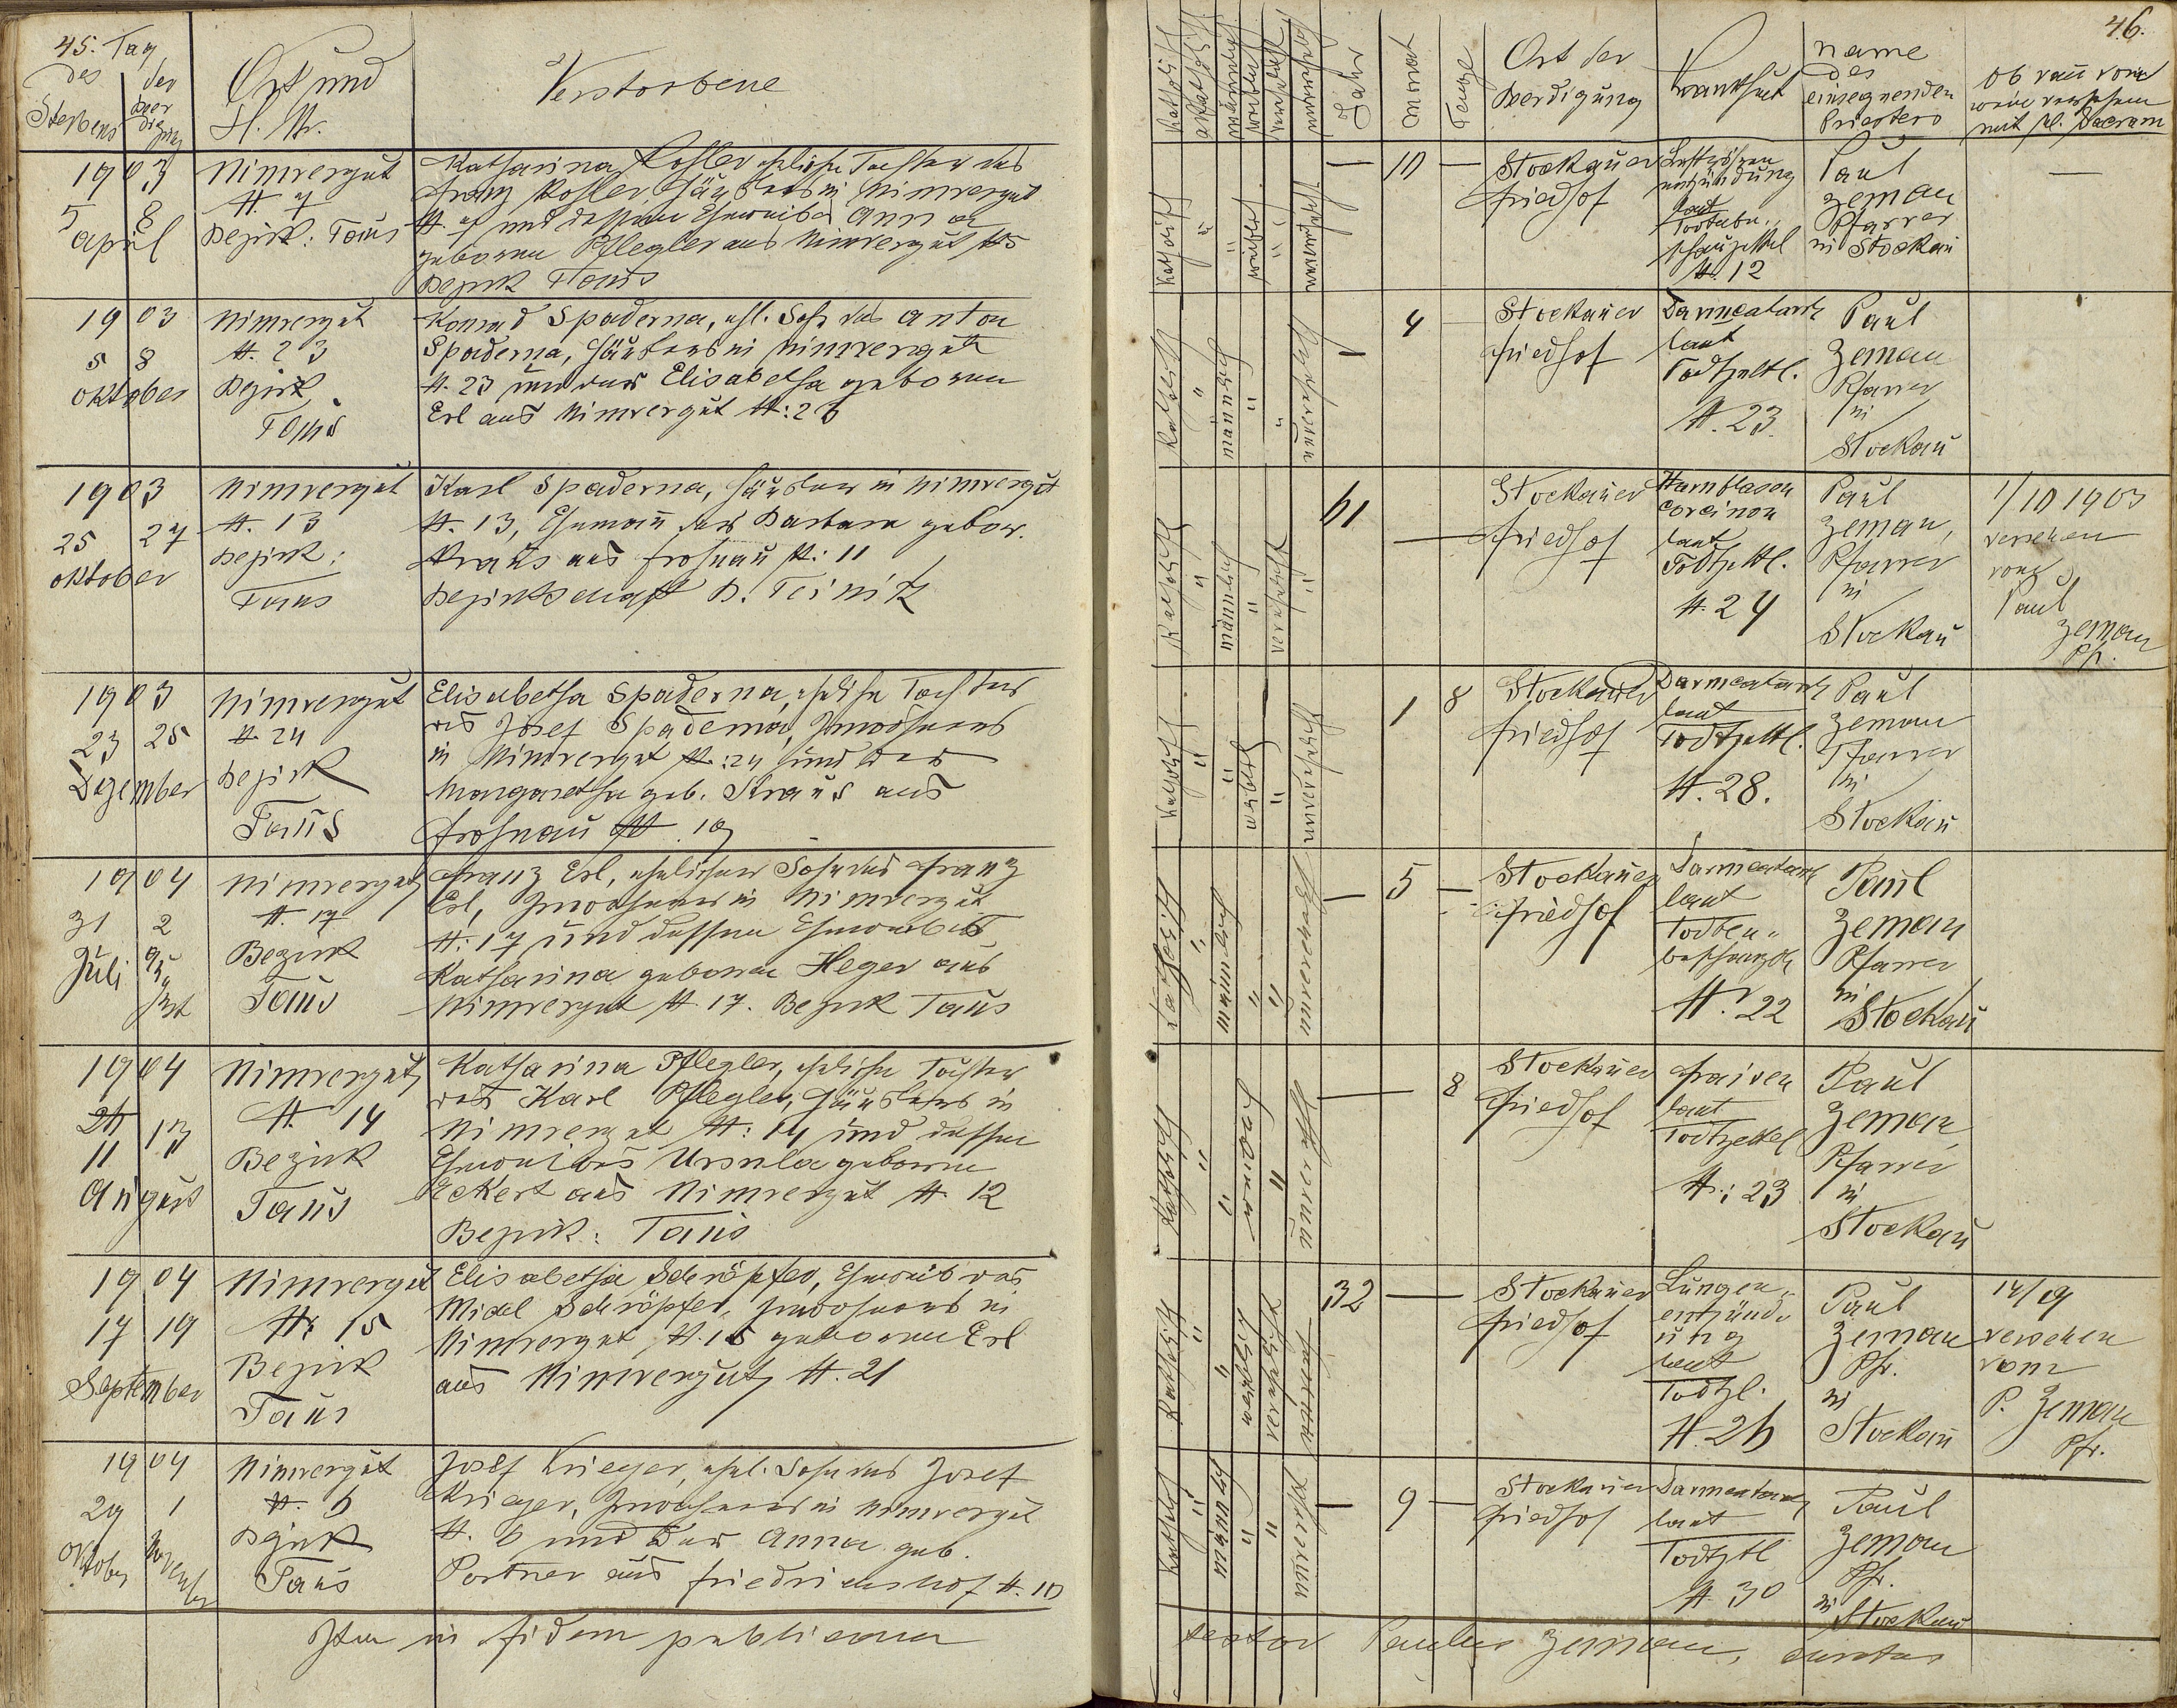 45. Tag
des der
Sterbens Beerdigung
Ort und
H. Nr.
Verstorbene
1903
5 8
April
Nimvergut
N. 7
Bezirk: Taus
Katharina Kohler eheliche Tochter des
Franz Kohler, Häuslers in Nimvergut
N. 7 und dessen Eheweibes Anna
geborenen Pflegler aus Nimvergut N 5
Bezirk Taus
1903
5 8
Oktober
Nimvergut
N. 23
Bezirk
Taus
Konrad Spaderna, ehl. Sohn des Anton
Spaderna, Häuslers in Nimvergut
N. 23 und der Elisabetha geborenen
Erl aus Nimvergut N: 26
1903
25 27
Oktober
Nimvergut
N. 13
Bezirk:
Taus
Karl Spaderna, Häusler in Nimvergut
N. 13, Ehemañ der Barbara gebor.
Kraus aus Frohnau N: 11
Bezirkschaft B. Teinitz
1903
23 25
Dezember
Nimvergut
N. 24
Bezirk
Taus
Elisabetha Spaderna, eheliche Tochter
des Josef Spaderna, Inwohners
in Nimvergut N.: 24 und der
Margaretha geb. Kraus aus
Frohnau N 19
1904
31 2
Juli August
Nimvergut
N. 17
Bezirk
Taus
Franz Erl, ehelicher Sohn des Franz
Erl, Inwohners in Nimvergut
N: 17 und dessen Eheweibes
Katharina geborenen Heger aus
Nimvergut N. 17. Bezirk Taus
1904
11 13
August
Nimvergut
N. 14
Bezirk
Taus
Katharina Pflegler, eheliche Tochter
des Karl Pflegler, Häuslers in
Nimvergut N: 14 und dessen
Eheweibes Ursula geborenen
Eckert aus Nimvergut N. 12
Bezirk: Taus
1904
17 19
September
Nimvergut
N: 15
Bezirk
Taus
Elisabetha Schröpfer, Eheweib des
Michl Schröpfer, Inwohners in
Nimvergut N. 15 geborenen Erl
aus Nimvergut N. 21
1904
29 1
Oktober November
Nimvergut
N. 6
Bezirk
Taus
Josef Krieger, ehel. Sohn des Josef
Krieger, Inwohners in Nimvergut
N. 6 und der Anna geb.
Portner aus Friedrichshof N. 10
Ita in fidem publicam
46.
Katholisch
akatholisch
männlich
weiblich
verehelicht
unverehelicht
Jahr
Monat
Tage
Ort der
Beerdigung
Krankheit
Name
des
einsegnenden
Priesters
Ob vañ von
wem versehen
mit hl. Sacram
katholisch " " weiblich " unverehelicht
— 10 —
Stockauer
Friedhof
Luftröhren
entzündung
laut
Todtenbe.
schauzettel
N. 12
Paul
Zeman
Pfarrer
in Stockau
—
katholisch " männlich " " unverehelicht
— 4
Stockauer
Friedhof
Darmcatarrh
laut
Todtzettl.
N. 23.
Paul
Zeman
Pfarrer
in
Stockau
katholisch " männlich " verehelicht "
61 —
Stockauer
Friedhof
Harnblasen
Carcinom
laut
Todtzettl.
N. 24
Paul
Zeman,
Pfarrer
in
Stockau
1/10 1903
versehen
von
Paul
Zeman
Pfr.
katholisch " " weiblich " unverehelicht
1 8
Stockauer
Friedhof
Darmcatarrh
laut
Todtzettl.
N. 28.
Paul
Zeman
Pfarrer
in
Stockau
katholisch " männlich " " unverehelicht
— 5 —
Stockauer
Friedhof
Darmcatarrh
laut
Todten-
beschauzettl
N. 22
Paul
Zeman
Pfarrer
in
Stockau
katholisch " " weiblich " unverehelicht
— 8
Stockauer
Friedhof
Fraisen
laut
Todtzettel
N.: 23
Paul
Zeman
Pfarrer
in
Stockau
katholisch " " weiblich verehelicht
32 —
Stockauer
Friedhof
Lungen-
entzünd-
ung
laut
Todtzl.
N. 26
Paul
Zeman
Pfr.
in
Stockau
14/9
versehen
vom
P. Zeman
Pfr.
katholisch " männlich " " unverehelicht
— 9 —
Stockauer
Friedhof
Darmcatarrh
laut
Todtztl
N. 30
Paul
Zeman
Pfr.
in Stockau
testor Paulus Zeman, curatus